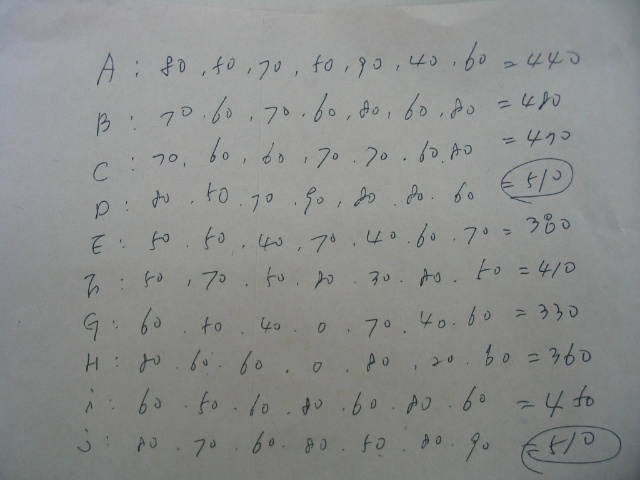 A : 80 . 50 . 70 , 50 , 90 , 40 . 60 = 440
B : 70 . 60 , 70 . 60 , 80 , 60 , 80 = 480
C : 70 , 60 , 60 , 70 . 70 . 60 . 80 = 470
D : 80 . 50 . 70 . 90 , 80 . 80 . 60 = 510
E : 50 . 50 . 40 , 70 . 40 . 60 . 70 = 380
50 , 70 . 50 . 80 . 30 . 80 . 50 = 410
G : 60 . 50 . 40 . 0 . 70 . 40 . 60 = 330
H : 80 . 60 . 60 . 0 . 80 , 20 . 60 = 360
i : 60 . 50 . 60 . 80 . 60 . 80 . 60 = 450
j : 80 . 70 . 60 . 80 . 50 . 80 . 90 = 510